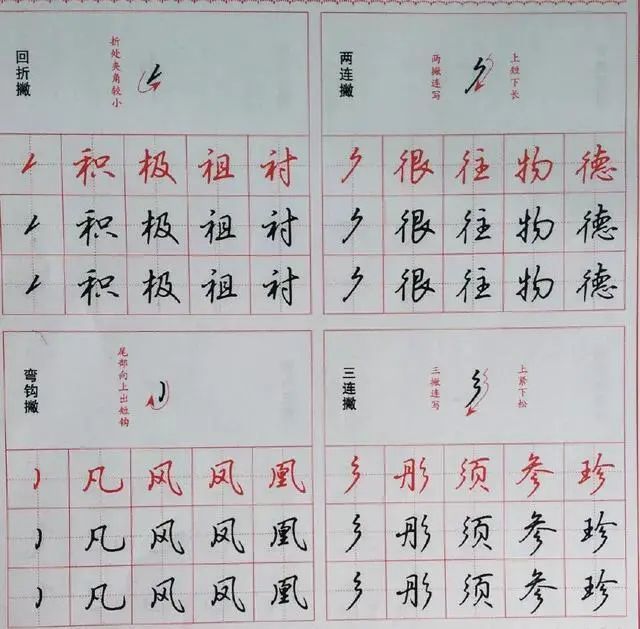 回折撇
折处夹角较小
积 极 祖 衬
积 极 祖 衬
积 极 祖 衬
两连撇
两撇连写
上短下长
很 往 物 德
很 往 物 德
很 往 物 德
弯钩撇
尾部向上出短钩
凡 风 凤 凰
凡 风 凤 凰
凡 风 凤 凰
三连撇
三撇连写
上紧下松
彤 须 参 珍
彤 须 参 珍
彤 须 参 珍